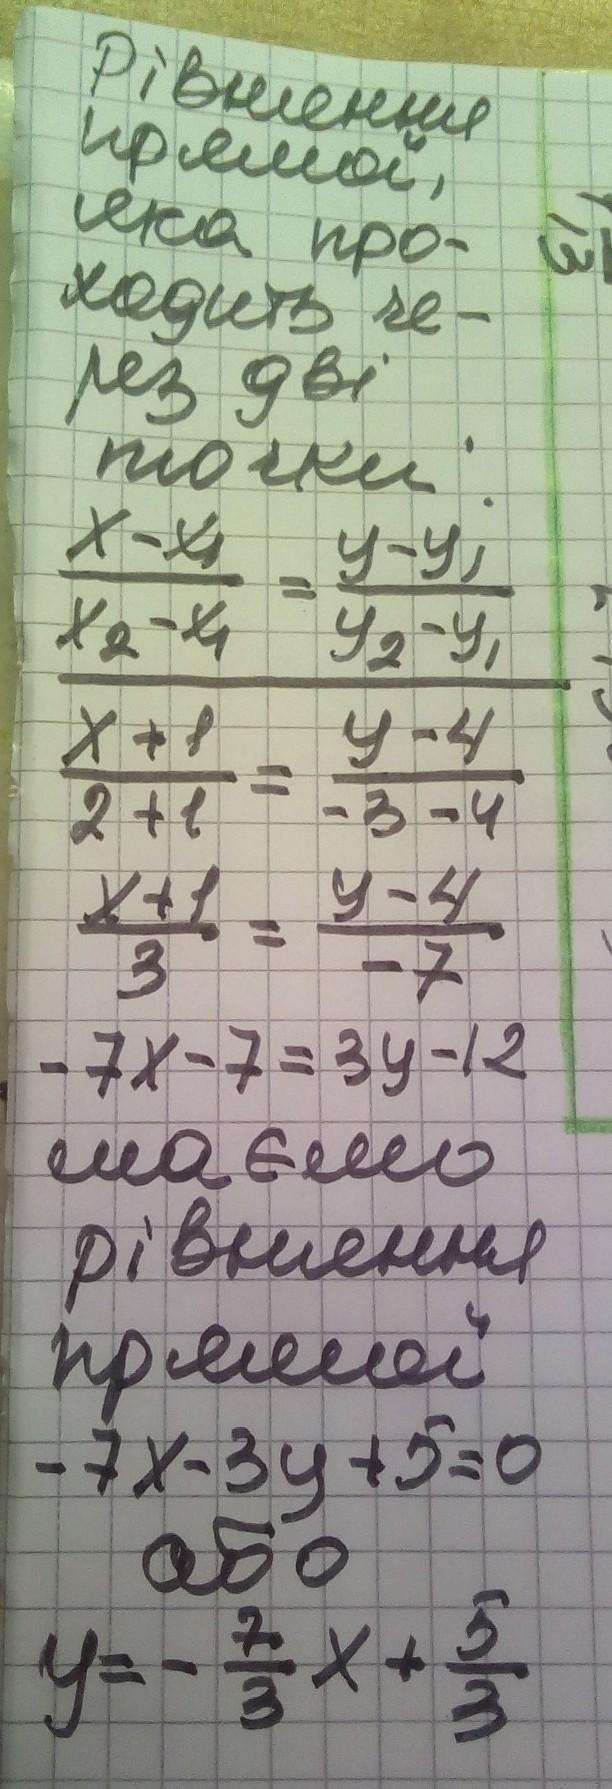 Рівняння
прямої,
яка про-
ходить че-
рез дві
точки:
x-x₁/x₂-x₁ = y-y₁/y₂-y₁
x+1/2+1 = y-4/-3-4
x+1/3 = y-4/-7
-7x-7=3y-12
маємо
рівняння
прямої
-7x-3y+5=0
або
y=-7/3x+5/3